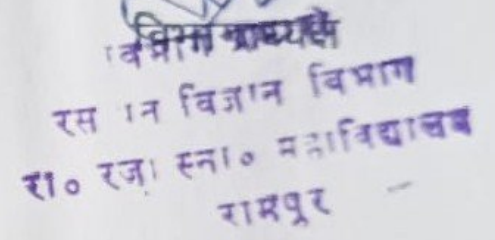 विभागाध्यक्ष
रसायन विज्ञान विभाग
रा० रज़ा स्ना० महाविद्यालय
रामपुर